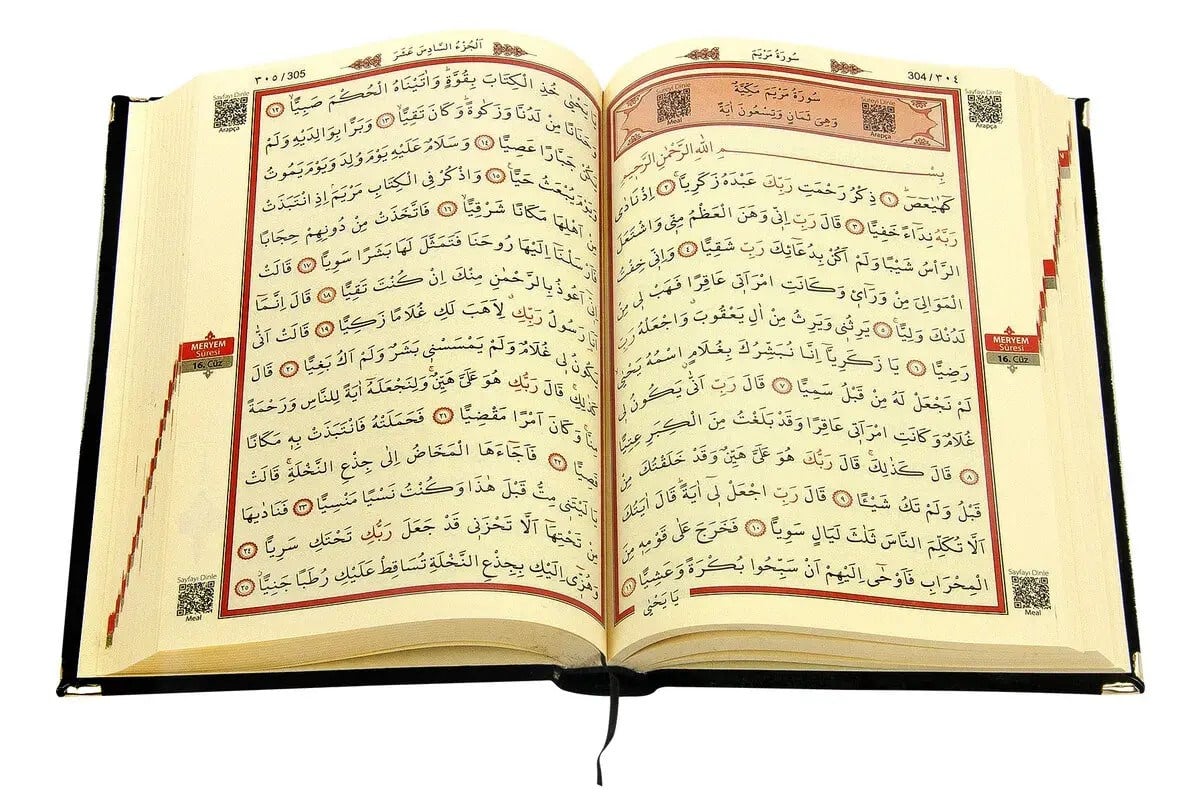 304 / ٣٠٤
سُورَةُ مَرْيَمَ
Sayfayı Dinle
Arapça
Meal
سُورَةُ مَرْيَمَ مَكِّيَّةٌ
وَهِيَ ثَمَانٍ وَتِسْعُونَ اٰيَةً
Sayfayı Dinle
Arapça
بِسْــــــمِ اللّٰهِ الرَّحْمٰنِ الرَّحٖيمِ
كٓهٰيٰعٓصٓ ﴿١﴾ ذِكْرُ رَحْمَتِ رَبِّكَ عَبْدَهُ زَكَرِيَّاۚ ﴿٢﴾ اِذْ نَادٰى
رَبَّهُ نِدَٓاءً خَفِيًّا ﴿٣﴾ قَالَ رَبِّ اِنّٖي وَهَنَ الْعَظْمُ مِنّٖي وَاشْتَعَلَ
الرَّأْسُ شَيْبًا وَلَمْ اَكُنْ بِدُعَٓائِكَ رَبِّ شَقِيًّا ﴿٤﴾ وَاِنّٖي خِفْتُ
الْمَوَالِيَ مِنْ وَرَٓائٖي وَكَانَتِ امْرَاَتٖي عَاقِرًا فَهَبْ لٖي مِنْ
لَدُنْكَ وَلِيًّاۙ ﴿٥﴾ يَرِثُنٖي وَيَرِثُ مِنْ اٰلِ يَعْقُوبَ وَاجْعَلْهُ رَبِّ
رَضِيًّا ﴿٦﴾ يَا زَكَرِيَّٓا اِنَّا نُبَشِّرُكَ بِغُلَامٍ اسْمُهُ يَحْيٰى
لَمْ نَجْعَلْ لَهُ مِنْ قَبْلُ سَمِيًّا ﴿٧﴾ قَالَ رَبِّ اَنّٰى يَكُونُ لٖي
غُلَامٌ وَكَانَتِ امْرَاَتٖي عَاقِرًا وَقَدْ بَلَغْتُ مِنَ الْكِبَرِ عِتِيًّا
﴿٨﴾ قَالَ كَذٰلِكَۚ قَالَ رَبُّكَ هُوَ عَلَيَّ هَيِّنٌ وَقَدْ خَلَقْتُكَ مِنْ
قَبْلُ وَلَمْ تَكُ شَيْـًٔا ﴿٩﴾ قَالَ رَبِّ اجْعَلْ لٖٓي اٰيَةًۜ قَالَ اٰيَتُكَ
اَلَّا تُكَلِّمَ النَّاسَ ثَلٰثَ لَيَالٍ سَوِيًّا ﴿١٠﴾ فَخَرَجَ عَلٰى قَوْمِهٖ مِنَ
الْمِحْرَابِ فَاَوْحٰٓى اِلَيْهِمْ اَنْ سَبِّحُوا بُكْرَةً وَعَشِيًّا ﴿١١﴾
يَا يَحْيٰى
MERYEM
Sûresi
16. Cüz
Sayfayı Dinle
Meal
اَلْجُزْءُ السَّادِسَ عَشَرَ
٣٠٥ / 305
Sayfayı Dinle
Arapça
يَا يَحْيٰى خُذِ الْكِتَابَ بِقُوَّةٍۜ وَاٰتَيْنَاهُ الْحُكْمَ صَبِيًّاۙ ﴿١٢﴾
وَحَنَانًا مِنْ لَدُنَّا وَزَكٰوةًۜ وَكَانَ تَقِيًّاۙ ﴿١٣﴾ وَبَرًّا بِوَالِدَيْهِ وَلَمْ
يَكُنْ جَبَّارًا عَصِيًّا ﴿١٤﴾ وَسَلَامٌ عَلَيْهِ يَوْمَ وُلِدَ وَيَوْمَ يَمُوتُ
وَيَوْمَ يُبْعَثُ حَيًّا۟ ﴿١٥﴾ وَاذْكُرْ فِي الْكِتَابِ مَرْيَمَۢ اِذِ انْتَبَذَتْ
مِنْ اَهْلِهَا مَكَانًا شَرْقِيًّاۙ ﴿١٦﴾ فَاتَّخَذَتْ مِنْ دُونِهِمْ حِجَابًا
فَاَرْسَلْنَٓا اِلَيْهَا رُوحَنَا فَتَمَثَّلَ لَهَا بَشَرًا سَوِيًّا ﴿١٧﴾ قَالَتْ
اِنّٖٓي اَعُوذُ بِالرَّحْمٰنِ مِنْكَ اِنْ كُنْتَ تَقِيًّا ﴿١٨﴾ قَالَ اِنَّمَٓا
اَنَا۬ رَسُولُ رَبِّكِۗ لِاَهَبَ لَكِ غُلَامًا زَكِيًّا ﴿١٩﴾ قَالَتْ اَنّٰى
يَكُونُ لٖي غُلَامٌ وَلَمْ يَمْسَسْنٖي بَشَرٌ وَلَمْ اَكُ بَغِيًّا ﴿٢٠﴾ قَالَ
كَذٰلِكِۚ قَالَ رَبُّكِ هُوَ عَلَيَّ هَيِّنٌۚ وَلِنَجْعَلَهُٓ اٰيَةً لِلنَّاسِ وَرَحْمَةً
مِنَّاۚ وَكَانَ اَمْرًا مَقْضِيًّا ﴿٢١﴾ فَحَمَلَتْهُ فَانْتَبَذَتْ بِهٖ مَكَانًا
قَصِيًّا ﴿٢٢﴾ فَاَجَٓاءَهَا الْمَخَاضُ اِلٰى جِذْعِ النَّخْلَةِۚ قَالَتْ
يَا لَيْتَنٖي مِتُّ قَبْلَ هٰذَا وَكُنْتُ نَسْيًا مَنْسِيًّا ﴿٢٣﴾ فَنَادٰيهَا
مِنْ تَحْتِهَٓا اَلَّا تَحْزَنٖي قَدْ جَعَلَ رَبُّكِ تَحْتَكِ سَرِيًّا ﴿٢٤﴾
وَهُزّٖٓي اِلَيْكِ بِجِذْعِ النَّخْلَةِ تُسَاقِطْ عَلَيْكِ رُطَبًا جَنِيًّاۘ ﴿٢٥﴾
MERYEM
Sûresi
16. Cüz
Sayfayı Dinle
Meal